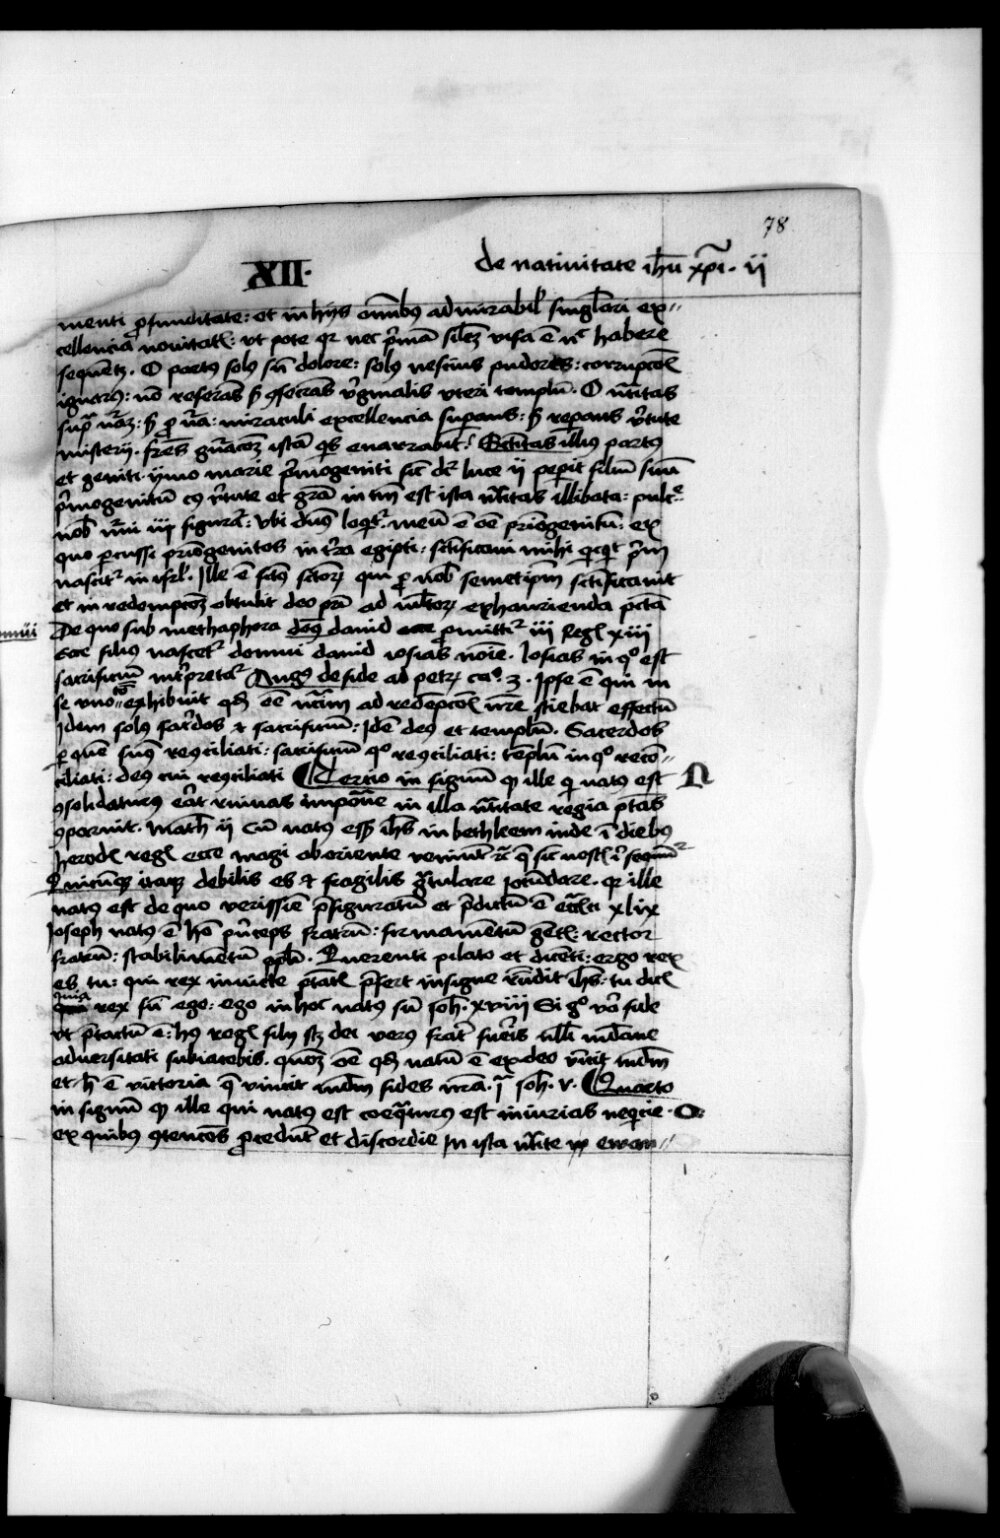 78
XII· de natiuitate ih̄u xp̄i · ij
menti ꝓfunditate: et in hijs om̄ibꝰ admirabil' singl̄ari ex〃
cellencia nouitatꝭ: vt pote qꝛ nec p̄mā sil̄ez visa ē nͨ habere
sequētꝫ. O partꝰ solꝰ sn̄ dolore: solꝰ nescius pudoris: corrupcoꝭ
ignarꝰ: nō reserās sꝫ ꝯsecrās v̓gīnalis vteri templū. O natitas
sup̄ nāꝫ: sꝫ ꝓ nā: miraculi excellencia superans: sꝫ repans v̓tute
misterij. fr̄es gn̄acōeꝫ istā qͥs enarrabit. Sctitas illiꝰ partꝰ
et geniti ymo marie p̓mogeniti sic dr̄ luce ij peperit filiū suū
p̓mogenitū cꝰ v̓tute et grā in tm̄ est ista natitas illibata: pulcͬe
nob̄ nūi iij figurat̄: vbi dn̄s loqͥtͬ. meū ē oē prīogenitū: ex
quo percussi prīogenitos in t̓ra egipti: sctificaui mihi qͥcqͥt p̓m
nascitͬ in isrl̄. Ille ē sctꝰ sctoꝝ qui ꝓ nob̄ semetip̄m sctificauit
et in redempcōeꝫ obtulit deo pr̄i ad mltoꝝ exhaurienda pctā
De quo sub methaphora domꝰ dauid ecce ꝓmittitͬ iij Regꝭ xiij
Ecce filius nascetͬ domui dauid iosias noīe. Iosias in qͦ est
sacrificiū int̓pretatͬ Augꝰ de fide ad petꝝ caͦ. 3. Ipse ē qui in
se vno totū exhibuit qd̄ oē nc̄cm̄ ad redēpcōꝭ nr̄e sciebat effectū
Idem solꝰ sac̓dos ⁊ sacrificiū: Idē deꝰ et templū. Sacerdos
ꝑ quē sumꝰ recōciliati: sacrificiū qͦ recōciliati: tēplū in qͦ recō〃
ciliati: deꝰ cui recōciliati ¶ Tercio in signū ꝙ ille qͥ natꝰ est N
ꝯsolidaturꝰ erat ruinas impotēcie in illa natitate regia ptās
ꝯparuit. Math̄ ij Cū natꝰ ess̄ ih̄s in bethleem iude ī diebꝰ
herodꝭ regꝭ ecce magi ab oriente venūt ⁊c̄
Quicūqꝫ itaqꝫ debilis es ⁊ fragilis gͣtulare iocūdare. qꝛ ille
natꝰ est de quo verissīe p̄figuratū et p̄dictū ē eccli xlix
Ioseph natꝰ ē hō pͥnceps fratrū: firmamentū gētꝭ: rector
fratrū: stabilimētū ppl̄i. Querenti pilato et dicēti: ergo rex
es tu: qui rex inuicte ptātꝭ p̄fert insigne rn̄dit ih̄s: tu dicꝭ
quia rex sū ego: ego in hoc natꝰ sū Ioh̄. xviij Si gͦ va fide
vt p̄tactū ē: hꝰ regꝭ filij scꝫ dei verꝰ frat̓ fueris nll̄i mūdane
aduersitati subiacebis. quoꝫ oē qd̄ natū ē ex deo vīcit mūdm̄
et h̄ ē victoria q̄ vincit mūdm̄ fides nr̄a. jͣ Ioh̄. v. ¶ Quarto
in signū ꝙ ille qui natꝰ est coeqͣturꝰ est iniurias neqͥcie · O·
ex quibus ꝯtencōes ꝓcedūt et discordie In ista natīte ewan〃